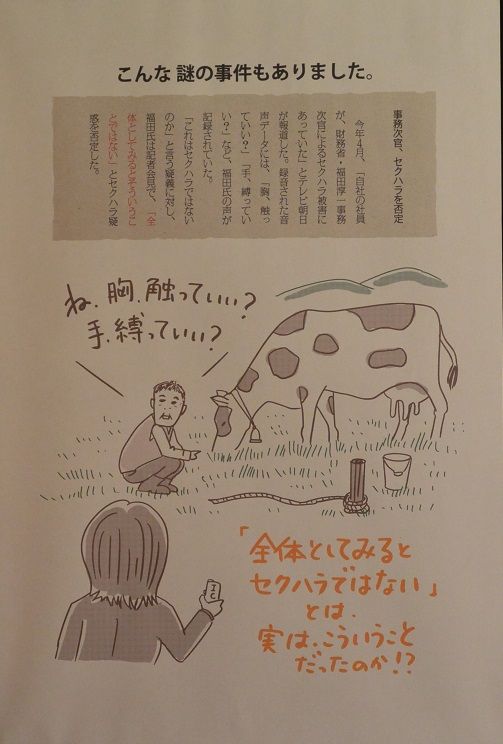 こんな謎の事件もありました。
事務次官、セクハラを否定
今年4月、「自社の社員
が、財務省・福田淳一事務
次官によるセクハラ被害に
あっていた」とテレビ朝日
が報道した。録音された音
声データには、「胸、触っ
ていい?」「手、縛ってい
い?」など、福田氏の声が
記録されていた。
「これはセクハラではない
のか」と言う疑義に対し、
福田氏は記者会見で、「全
体としてみるとそういうこ
とではない」とセクハラ疑
惑を否定した。
ね、胸、触っていい?
手、縛っていい?
「全体としてみると
セクハラではない」
とは、
実は、こういうこと
だったのか!?
IC